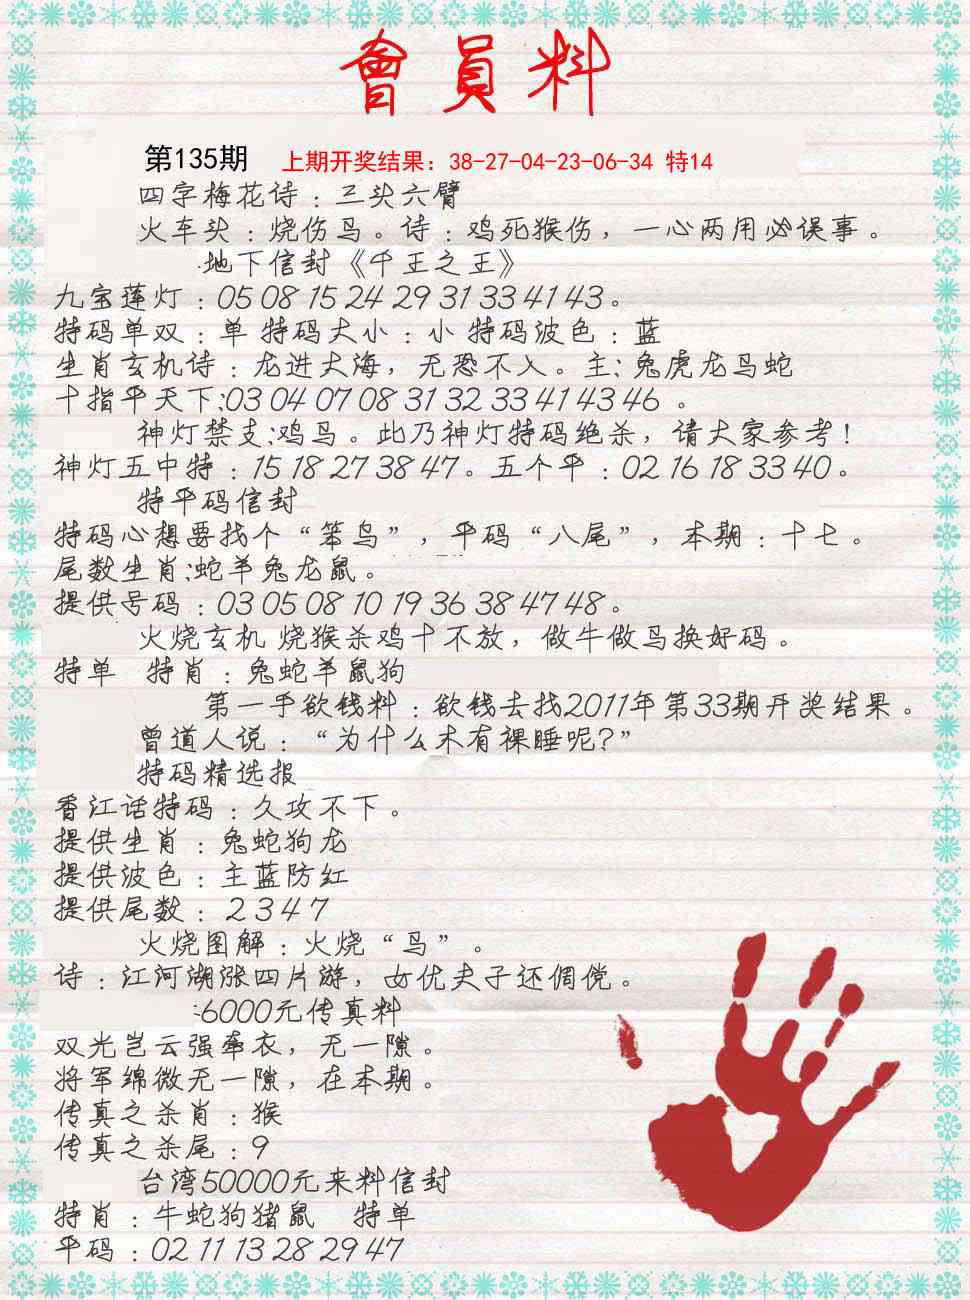 會員料
第135期 上期开奖结果：38-27-04-23-06-34 特14
四字梅花诗：三头六臂
火车头：烧伤鸟。诗：鸡死猴伤，一心两用必误事。
地下信封《千王之王》
九宝莲灯：05 08 15 24 29 31 33 41 43。
特码单双：单 特码大小：小 特码波色：蓝
生肖玄机诗：龙进大海，无恐不入。主：兔虎龙鸟蛇
十指平天下:03 04 07 08 31 32 33 41 43 46 。
神灯禁支:鸡鸟。此乃神灯特码绝杀，请大家参考！
神灯五中特：15 18 27 38 47。五个平：02 16 18 33 40。
特平码信封
特码心想要找个“笨鸟”，平码“八尾”，本期：十七。
尾数生肖:蛇羊兔龙鼠。
提供号码：03 05 08 10 19 36 38 47 48。
火烧玄机 烧猴杀鸡十不放，做牛做鸟换好码。
特单 特肖：兔蛇羊鼠狗
第一手欲钱料：欲钱去找2011年第33期开奖结果。
曾道人说：“为什么木有裸睡呢?”
特码精选报
香江话特码：久攻不下。
提供生肖：兔蛇狗龙
提供波色：主蓝防红
提供尾数：2 3 4 7
火烧图解：火烧“鸟”。
诗：江河湖涨四片游，女优夫子还倜傥。
:6000元传真料
双光岂云强牵衣，无一隙。
将军绵微无一隙，在本期。
传真之杀肖：猴
传真之杀尾：9
台湾50000元来料信封
特肖：牛蛇狗猪鼠 特单
平码：02 11 13 28 29 47